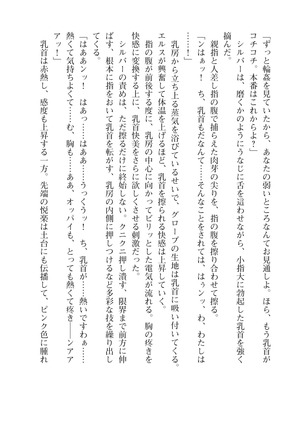 「ずっと輪姦を見ていたから、あなたの弱いところなんてお見通しよ。ほら、もう乳首が
コチコチ。本番はこれからよ？」
　シルバーは、磨くかのようにうなじに舌を這わせながら、小指大に勃起した乳首を強く
摘んだ。
「ンはぁッ！　ち、乳首もだなんて……そんなことをされては、はぅンッ、わ、わたしは
　親指と人差し指の腹で捕らえた肉芽の尖りを、指の腹を擦り合わせて擦る。
　乳房から立ち上る蒸気を浴びているせいで、グローブの生地は乳首に吸い付いてくる。
エルスが興奮して体温を上げるほど、乳首を擦られる快感は上昇していく。
　指の腹が前後する度に、乳房の中心に向かってピリッとした電気が流れる。胸の疼きを
快感に変換する上に、乳首快美をさらに欲しくさせる刺激だった。
　シルバーの責めは、ただ擦るだけに終始しない。クニクニ押し潰す、限界まで前方に伸
ばす、根本に指をおいて乳首を転がす、乳房の内側に押しつけるなど多彩な技を繰り出し
てくる。
「はああンッ！　はあっ……はああ……うっくぅッ！　ち、乳首が……熱いですわぁ……
熱くて気持ちよくて……む、胸……ああ、オッパイも、とっても熱くて疼き――ンアア
アッ！」
　乳首は赤熱し、感度も上昇する一方。先端の悦楽は土台にも伝播して、ピンク色に腫れ